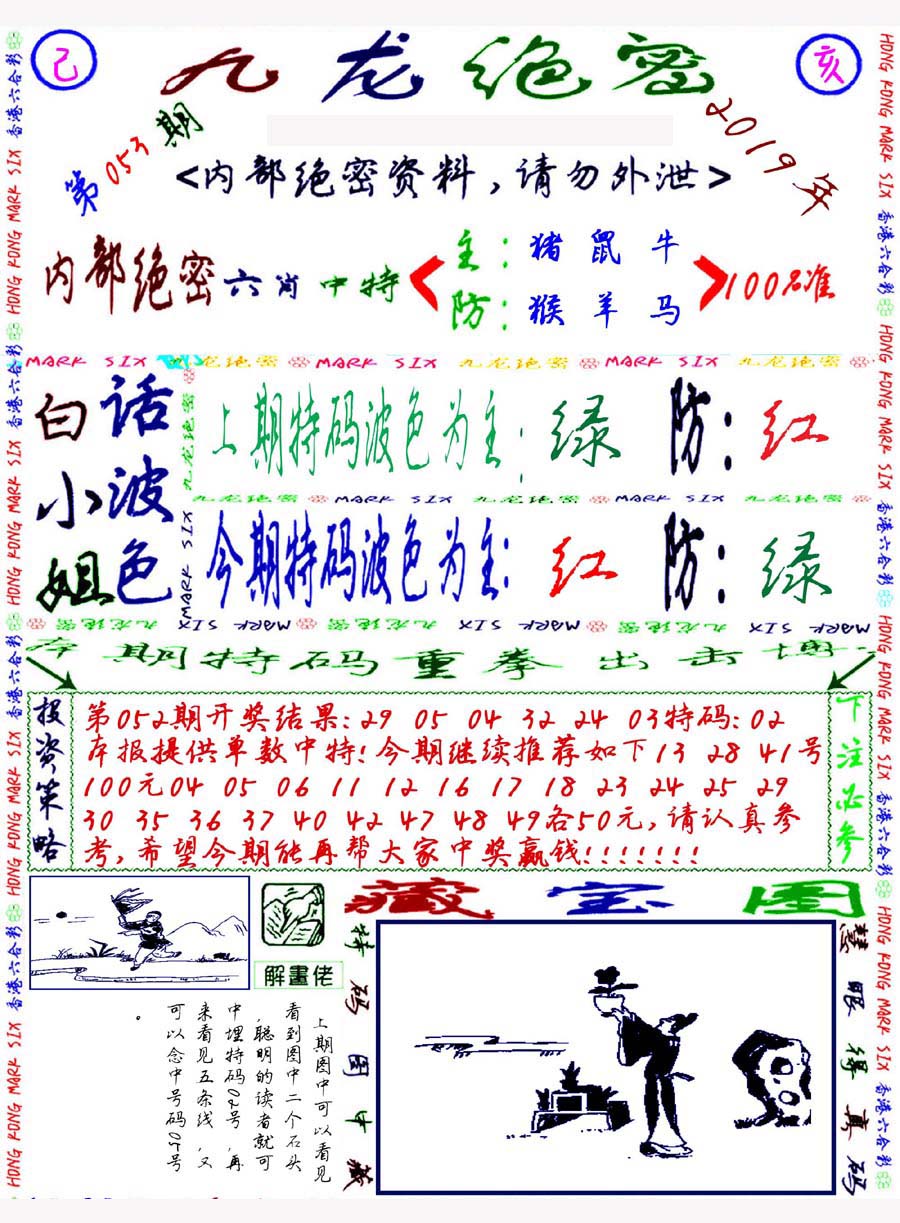 己
九龙绝密
亥
第053期
2019年
<内部绝密资料，请勿外泄>
内部绝密六肖中特
主：猪鼠牛
防：猴羊马
100%准
MARK SIX 九龙绝密 MARK SIX 九龙绝密 MARK SIX 九龙绝密
白话小姐
波色
上期特码波色为主：绿 防：红
九龙绝密 MARK SIX 九龙绝密 MARK SIX 九龙绝密
今期特码波色为主：红 防：绿
九龙绝密 MARK SIX
MARK SIX 九龙绝密 MARK SIX 九龙绝密 MARK SIX 九龙绝密
本期特码重拳出击博
投资策略
第052期开奖结果：29 05 04 32 24 03特码：02
本报提供单数中特！今期继续推荐如下13 28 41号
100元04 05 06 11 12 16 17 18 23 24 25 29
30 35 36 37 40 42 47 48 49各50元，请认真参
考，希望今期能再帮大家中奖赢钱！！！！！！！
下注必参
藏宝图
解畫佬
上期图中可以看见
看到图中二个石头
，聪明的读者就可
中埋特码02号，再
来看见五条线，又
可以念中号码05号
。
特码图中藏
慧眼得真码
HONG KONG MARK SIX 香港六合彩 HONG KONG MARK SIX 香港六合彩 HONG KONG MARK SIX 香港六合彩 HONG KONG MARK SIX 香港六合彩
HONG KONG MARK SIX 香港六合彩 HONG KONG MARK SIX 香港六合彩 HONG KONG MARK SIX 香港六合彩 HONG KONG MARK SIX 香港六合彩